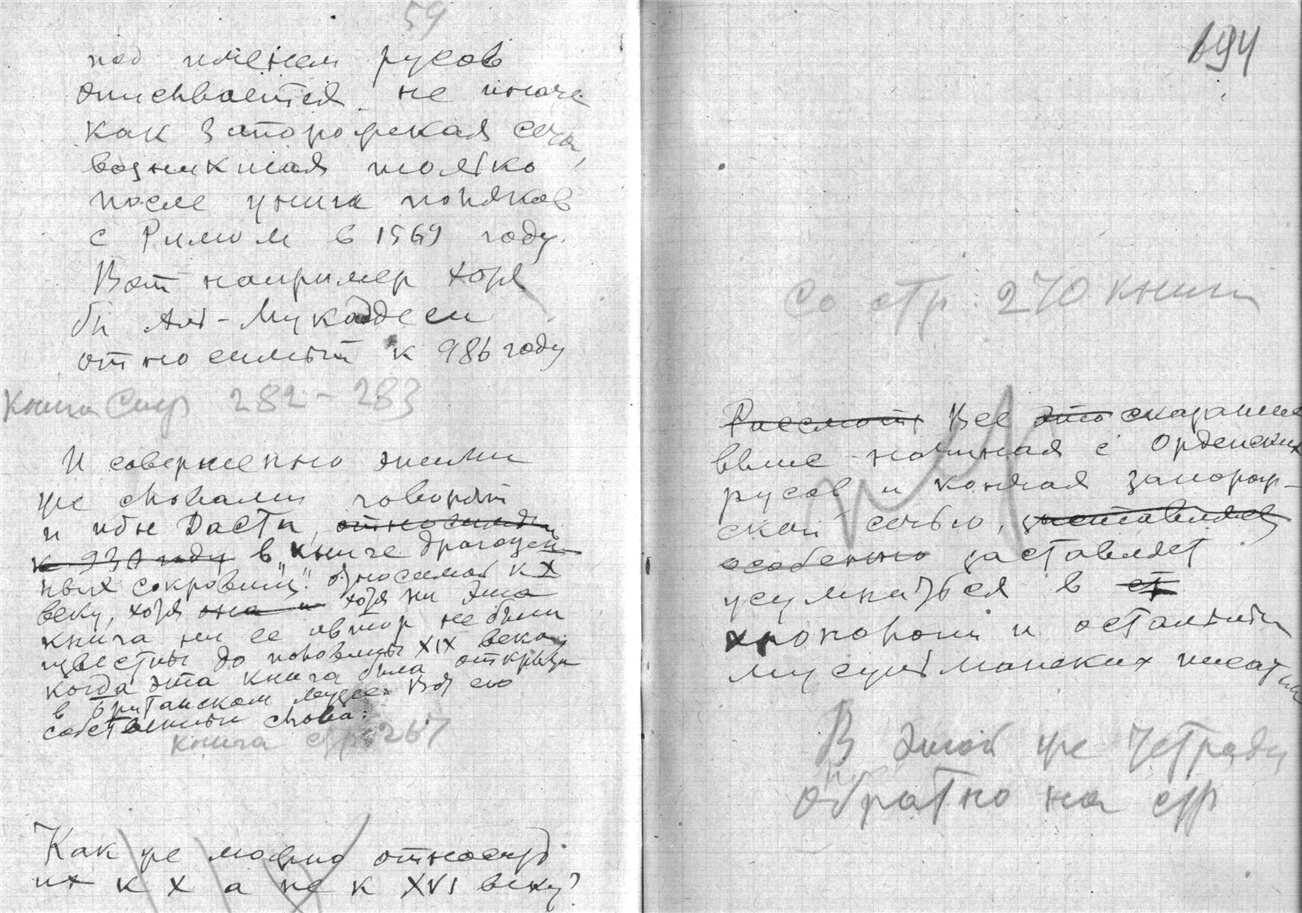 59
под именем русов
описывается не иначе
как Запорожская сечь,
возникшая только
после унии поляков
с Римом в 1569 году.
Вот например хотя
бы Ал-Мукаддеси
относимый к 986 году
Книга Стр 282-283
И совершенно этими
же словами говорят
и ибн Даста, относимый
к 930 году в книге драгоцен-
ных сокровищ" относимой к X
веку, хотя она и хотя ни эта
книга ни ее автор не были
известны до половины XIX века,
когда эта книга была открыта
в Британском музее. Вот его
собственные слова:
книга стр 267
Как же можно относить
их к X а не к XVI веку?
194
Со стр. 270 книги
Рассмотр Все это сказанное
выше начиная с Орденских
русов и кончая запорож-
ской сечью, заставляет
особенно заставляет
усумниться в
хронологии и остальных
мусульманских писат
В этой же тетради
обратно на стр